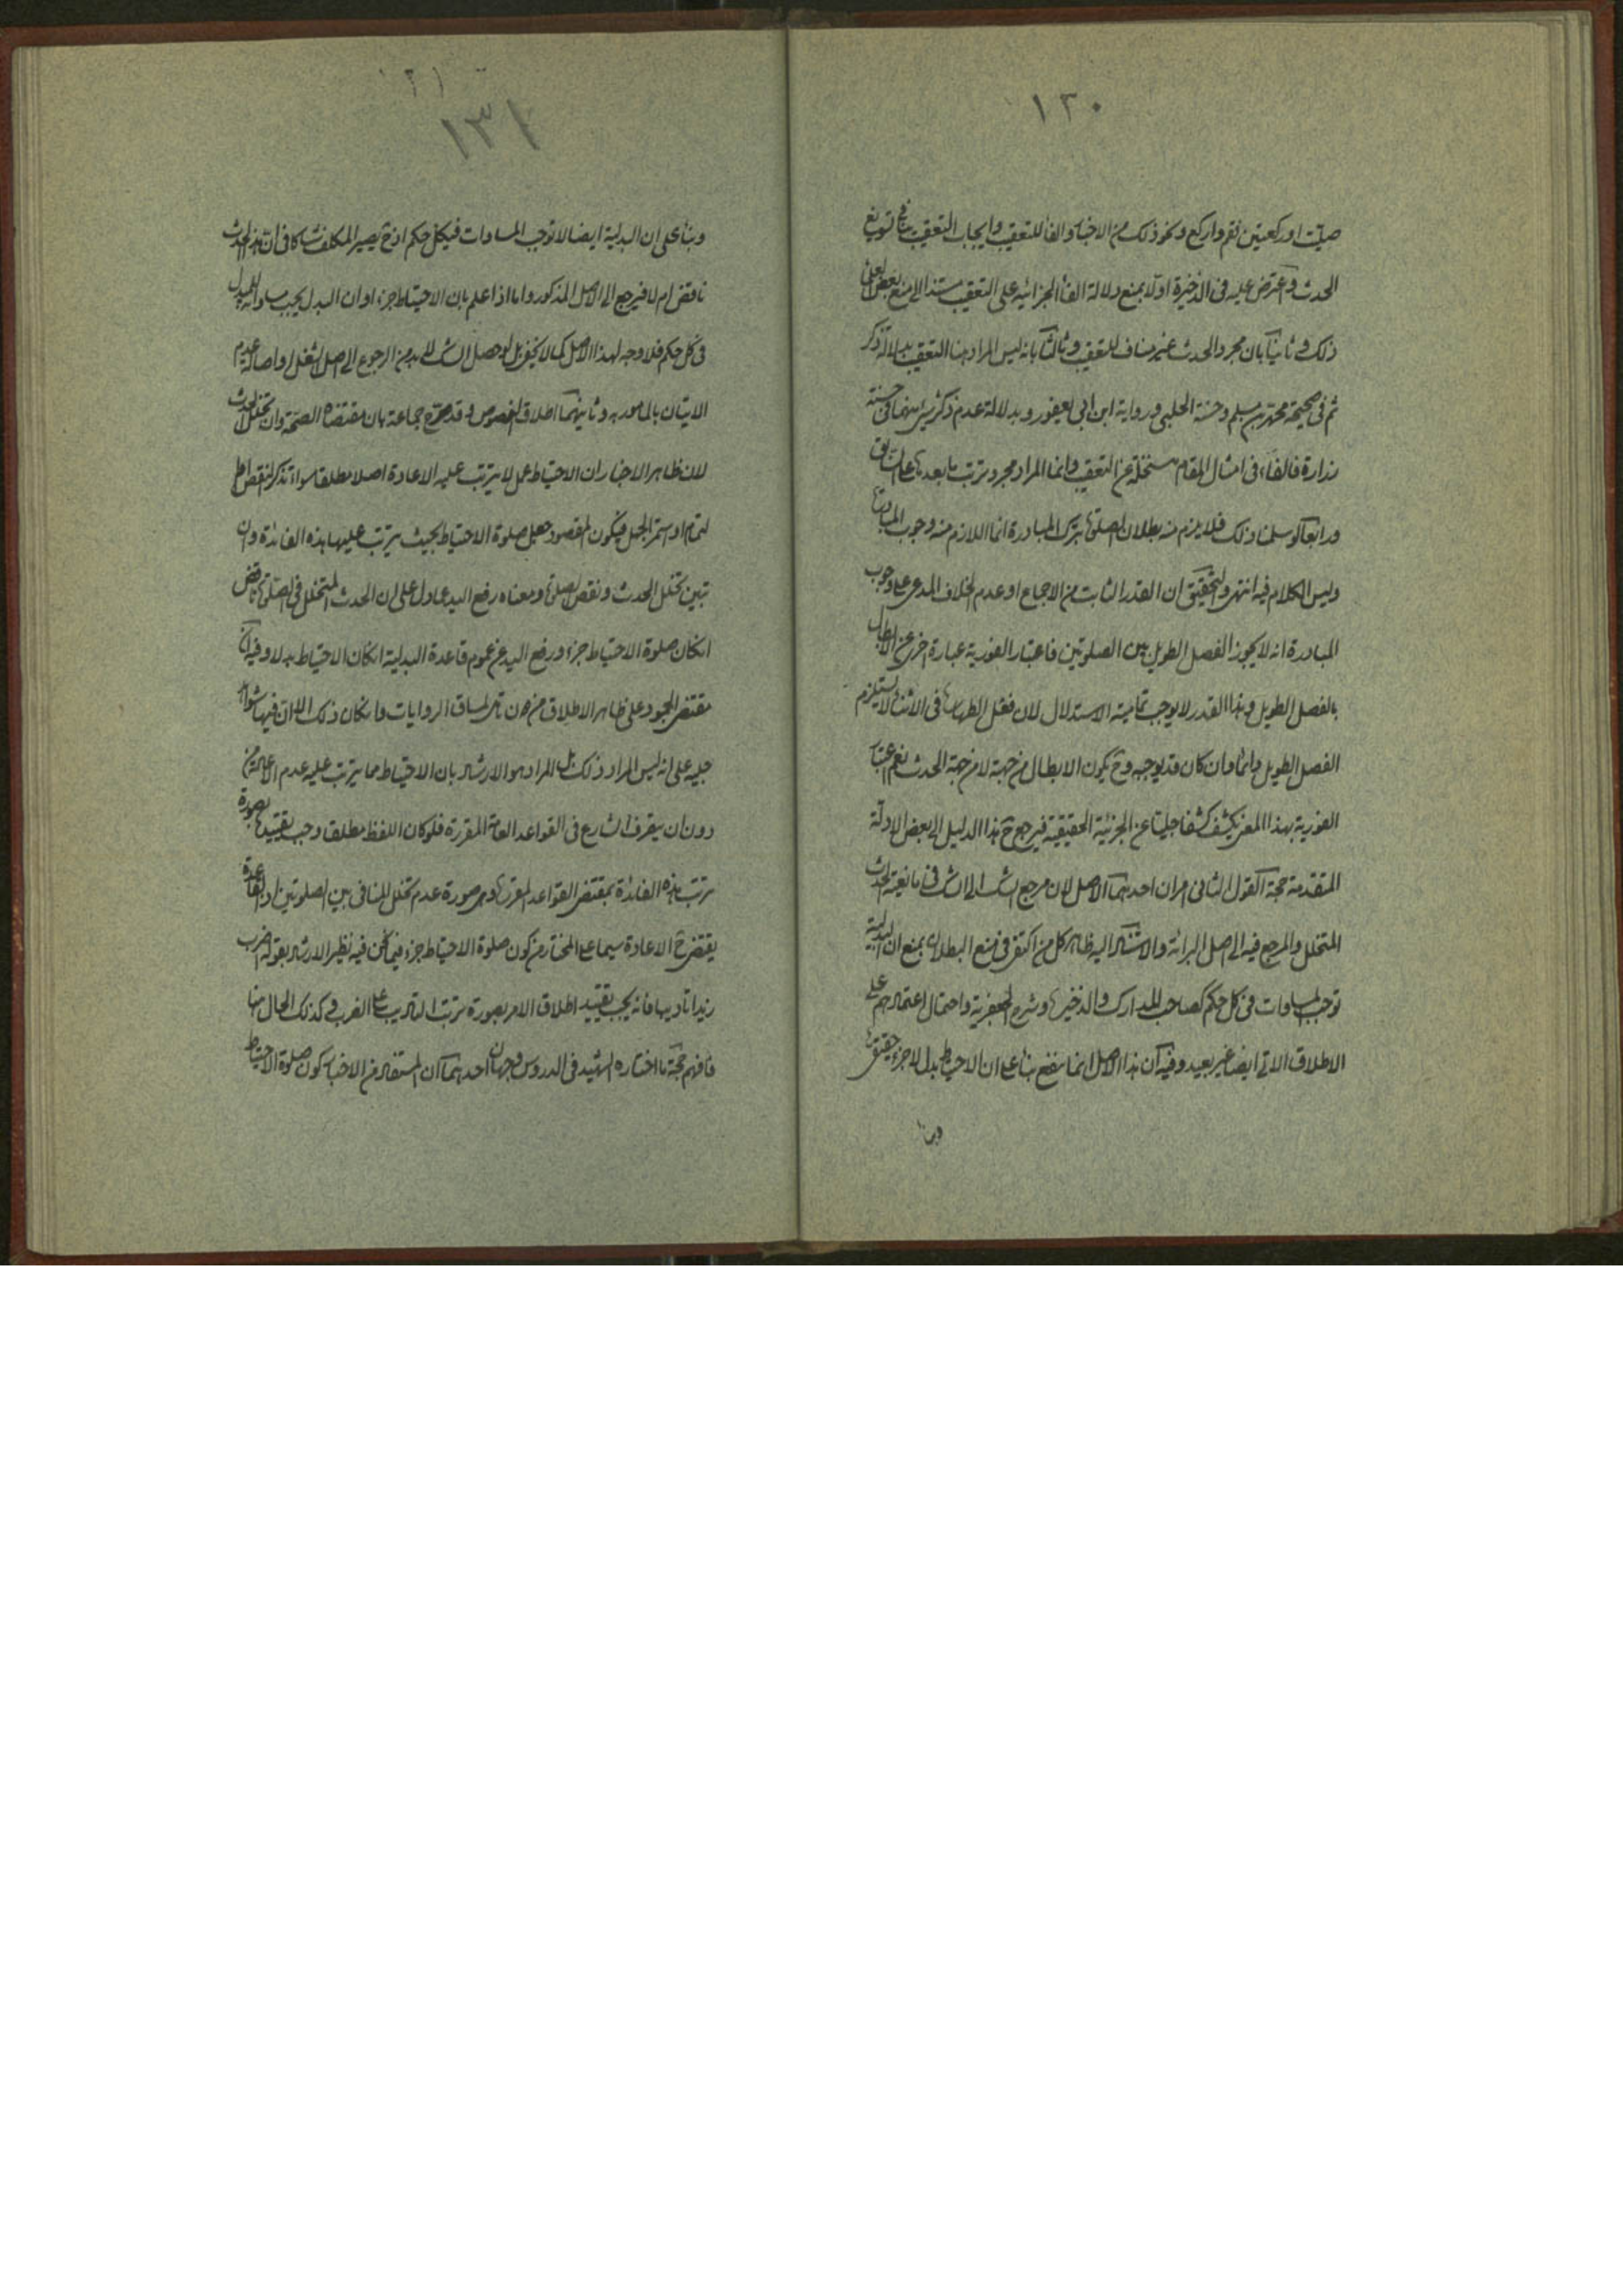 ١٢٠
صليت او ركعتين فقم واركع ونحو ذلك من الاخبار والفاء للتعقيب وايجاب التعقيب ينافي تسويغ
الحدث واعترض عليه في الذخيرة اولا بمنع دلالة الفاء الجزائيه على التعقيب مستندا الى منع بعض
ذلك وثانيا بان مجرد الحدث غير مناف للتعقيب وثالثا بانه ليس المراد هنا التعقيب بدلالة ذكر
ثم في صحيحة محمد بن مسلم وحسنة الحلبي ورواية ابن ابي يعفور وبدلالة عدم ذكر شئ منهما في حسنة
زرارة فالفاء في امثال المقام منسلخة عن التعقيب وانما المراد مجرد ترتب ما بعدها على السابق
ورابعا لو سلمنا ذلك فلا يلزم منه بطلان الصلوة بترك المبادرة انما اللازم منه وجوب المبادرة
وليس الكلام فيه انتهى والتحقيق ان القدر الثابت من الاجماع او عدم الخلاف المدعى على وجوب
المبادرة انه لا يجوز الفصل الطويل بين الصلوتين فاعتبار الفورية عبارة اخرى عن الابطال
بالفصل الطويل وهذا القدر لا يوجب تمامية الاستدلال لان فعل الطهارة في الاثناء لا يستلزم
الفصل الطويل دائما وان كان قد يوجبه وح يكون الابطال من جهته لا من جهة الحدث نعم اعتبار
الفورية بهذا المعنى يكشف كشفا جليا عن الجزئية الحقيقية فيرجع ح هذا الدليل الى بعض الادلة
المتقدمة حجة القول الثاني امران احدهما الاصل لان مرجع الشك الى الشك في مانعية الحدث
المتخلل والمرجع فيه الى اصل البرائة والاستناد اليه ظاهر كل من اكتفى في منع البطلان بمنع ان البدلية
توجب المساوات في كل حكم كصاحب المدارك والذخيرة وشرح الجعفرية واحتمال اعتمادهم على
الاطلاق الاتي ايضا غير بعيد وفيه ان هذا الاصل انما ينفع بناء على ان الاحتياط بدل لا جزء حقيقة
وبناء
١٢١
١٣١
وبناء على ان البدلية ايضا لا توجب المساوات في كل حكم اذ ح يصير المكلف شاكا في ان هذا الحدث
ناقض ام لا فيرجع الى الاصل المذكور واما اذا علم بان الاحتياط جزء او ان البدل يجب مساواته للمبدل
في كل حكم فلا وجه لهذا الاصل كما لا يخفى بل لو حصل الشك لا بد من الرجوع الى اصل الشغل واصالة عدم
الاتيان بالمامور به وثانيهما اطلاق النصوص وقد صرح جماعة بان مقتضاه الصحة وان تخلل الحدث
لان ظاهر الاخبار ان الاحتياط عمل لا يترتب عليه الاعادة اصلا مطلقا سواء تذكر النقص او
التمام او استمر الجهل فيكون المقصود جعل صلوة الاحتياط بحيث يترتب عليها هذه الفائدة وان
تبين تخلل الحدث ونقص الصلوة ومعناه رفع اليد عما دل على ان الحدث المتخلل في الصلوة ناقض
ان كان صلوة الاحتياط جزء ورفع اليد عن عموم قاعدة البدلية ان كان الاحتياط بدلا وفيه ان
مقتضى الجمود على ظاهر الاطلاق من دون تامل لمساق الروايات وان كان ذلك الا ان فيها شواهد
جلية على انه ليس المراد ذلك بل المراد هو الارشاد بان الاحتياط مما يترتب عليه عدم الاعادة من
دون ان يتصرف الشارع في القواعد العامة المقررة فلو كان اللفظ مطلقا وجب تقييده بصورة
ترتب هذه الفائدة بمقتضى القواعد المقررة وهي صورة عدم تخلل المنافي بين الصلوتين اذ القاعدة
يقتضي ح الاعادة سيما على المختار من كون صلوة الاحتياط جزء فيما نحن فيه نظير الارشاد بقوله اضرب
زيدا تاديبا فانه يجب تقييد اطلاق الامر بصورة ترتب التاديب على الضرب وكذلك الحال هنا
فافهم حجة ما اختاره الشهيد في الدروس وجهان احدهما ان المستفاد من الاخبار كون صلوة الاحتياط